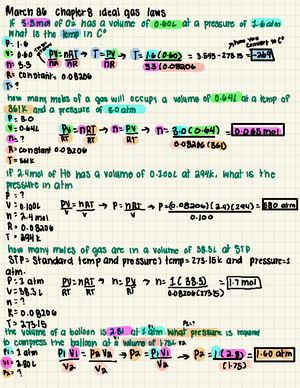 March 26 chapter 8 ideal gas laws
If 3.3 mol of O2 has a volume of 0.60L at a pressure of 1.6 atm
What is the temp in C°
P: 1.6
V: 0.60
n: 3.3
R= constant 0.08206
T= ?
PV = nRT → T = PV → T = 1.6 (0.60) = 3.545 - 273.15 = -269
nR nR nR 3.3 (0.08206)
how many moles of a gas will occupy a volume of 0.64L at a temp of
361K and a pressure of 3.0 atm
P = 3.0
V = 0.64L
n = ?
R = constant 0.08206
T = 361K
PV = nRT → n = PV → n = 3.0 (0.64) = 0.065 mol
RT RT RT 0.08206 (361)
if 2.4 mol of H2 has a volume of 0.100L at 294K. What is the
pressure in atm
P = ?
V = 0.100L
n = 2.4 mol
R = 0.08206
T = 294K
PV = nRT → P = nRT → P = (0.08206)(2.4)(294) = 580 atm
V V V 0.100
how many moles of gas are in a volume of 38.3L at STP
STP = Standard temp and pressure) temp = 273.15K and pressure = 1
atm.
P = 1 atm
V = 38.3L
n = ?
R = 0.08206
T = 273.15
PV = nRT → n = PV → n = 1 (38.3) = 1.7 mol
RT RT RT 0.08206 (273.15)
the volume of a balloon is 2.8L at 1 atm. What pressure is required
to compress the balloon at a volume of 1.75L
P1 = 1 atm
V1 = 2.80L
P2 = ?
P1 V1 = P2 V2 → P2 = P1 V1 → P2 = 1 (2.8) = 1.60 atm
V2 V2 V2 (1.75)